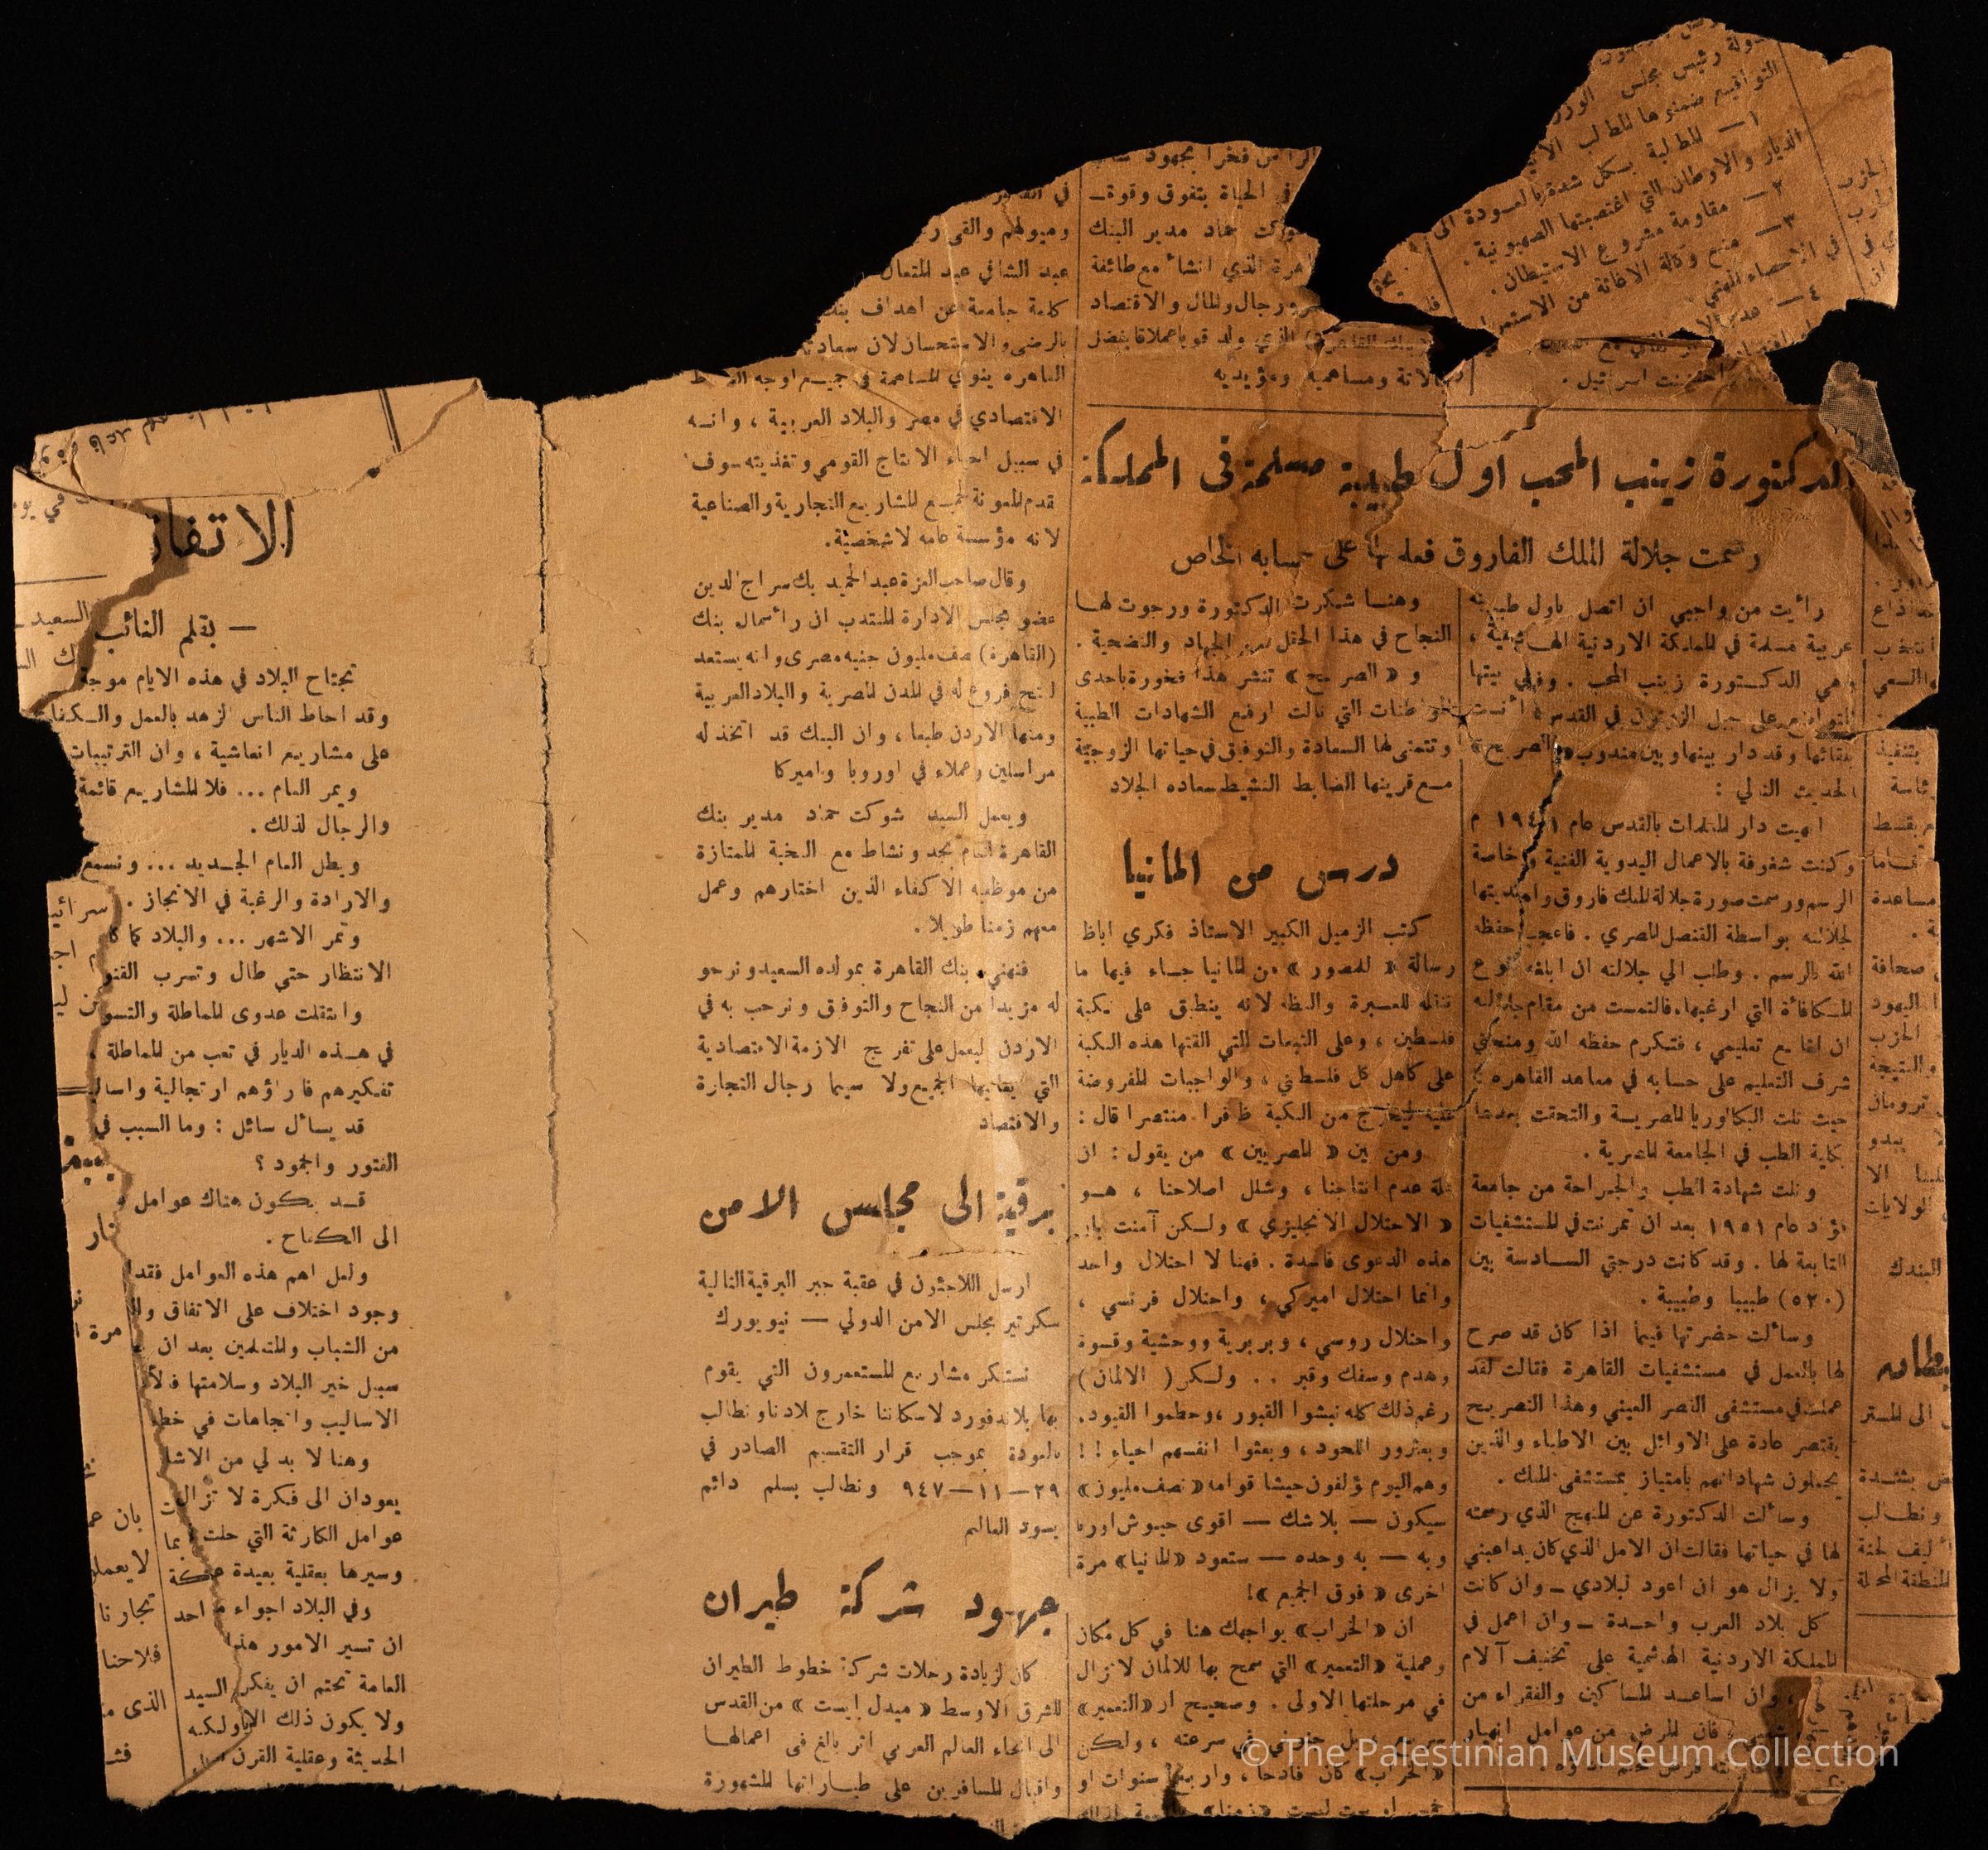 دولة رئيس مجلس الوزر
التواقيع ضمنوها المطالب الا
١ — المطالبة بكل شدة بالعودة الى
الديار والاوطان التي اغتصبتها الصهيونية .
٢ — مقاومة مشروع الاستيطان .
٣ — منع وكالة الاغاثة من الاستمرار
في الاحصاء المهني .
٤ —
احتضنت اسرائيل .
الحزب
الدكتورة زينب المحب اول طبيبة مسلمة في المملكة
رسمت جلالة الملك الفاروق فعلمها على حسابه الخاص
رأيت من واجبي ان اتصل باول طبيبة
عربية مسلمة في المملكة الاردنية الهاشمية ،
وهي الدكتورة زينب المحب . وفي بيتها
المتواضع على جبل الزيتون في القدس أنست
بلقائها وقد دار بينها وبين مندوب «الصريح»
الحديث التالي :
انهيت دار المعلمات بالقدس عام ١٩٤١ م
وكنت شغوفة بالاعمال اليدوية الفنية وخاصة
الرسم ورسمت صورة جلالة الملك فاروق واهديتها
لجلالته بواسطة القنصل المصري . فاعجب حفظه
الله بالرسم . وطلب الي جلالته ان ابلغه نوع
المكافأة التي ارغبها . فالتمست من مقام جلالته
ان اتابع تعليمي ، فتكرم حفظه الله ومنحني
شرف التعليم على حسابه في معاهد القاهرة ؛
حيث نلت البكالوريا المصرية والتحقت بعدها
بكلية الطب في الجامعة المصرية .
ونلت شهادة الطب والجراحة من جامعة
فؤاد عام ١٩٥١ بعد ان تمرنت في المستشفيات
التابعة لها . وقد كانت درجتي السادسة بين
(٥٢٠) طبيبا وطبيبة .
وسألت حضرتها فيما اذا كان قد صرح
لها بالعمل في مستشفيات القاهرة فقالت لقد
عملت في مستشفى القصر العيني وهذا التصريح
يقتصر عادة على الاوائل بين الاطباء والذين
يحملون شهاداتهم بامتياز بمستشفى الملك .
وسألت الدكتورة عن المنهج الذي رسمته
لها في حياتها فقالت ان الامل الذي كان يداعبني
ولا يزال هو ان اعود لبلادي — وان كانت
كل بلاد العرب واحدة — وان اعمل في
المملكة الاردنية الهاشمية على تخفيف آلام
، وان اساعد المساكين والفقراء من
فان المرض من عوامل انهيار
في الحياة بتفوق وقوة —
شوكت حماد مدير البنك
القاهرة الذي انشأ مع طائفة
ورجال المال والاقتصاد
(بنك القاهرة) الذي ولد قويا عملاقا بفضل
ومساهميه ومؤيديه
وهنا شكرت الدكتورة ورجوت لها
النجاح في هذا الحقل من الجهاد والتضحية .
و « الصريح » تنشر هذا فخورة باحدى
المواطنات التي نالت ارفع الشهادات الطبية
وتتمنى لها السعادة والتوفيق في حياتها الزوجية
مع قرينها الضابط النشيط سعاده الجلاد
درس من المانيا
كتب الزميل الكبير الاستاذ فكري اباظه
رسالة « للمصور » من المانيا جاء فيها ما
ننقله للعبرة والعظة لانه ينطبق على نكبة
فلسطين ، وعلى التبعات التي القتها هذه النكبة
على كاهل كل فلسطيني ، والواجبات المفروضة
عليه ليخرج من النكبة ظافرا منتصرا قال :
ومن بين « المصريين » من يقول : ان
علة عدم انتاجنا ، وشلل اصلاحنا ، هو
« الاحتلال الانجليزي » ولكن آمنت بان
هذه الدعوى فاسدة . فهنا لا احتلال واحد
وانما احتلال اميركي ، واحتلال فرنسي ،
واحتلال روسي ، وبربرية ووحشية وقسوة
وهدم وسفك وقبر . . ولكن ( الالمان )
رغم ذلك كله نبشوا القبور ، وحطموا القيود .
وبعثروا اللحود ، وبعثوا انفسهم احياء ! !
وهم اليوم يؤلفون جيشا قوامه «نصف مليون»
سيكون — بلا شك — اقوى جيوش اوربا
وبه — به وحده — ستعود «المانيا» مرة
اخرى « فوق الجميع »!
ان «الخراب» يواجهك هنا في كل مكان
وعملية «التعمير» التي سمح بها للالمان لا تزال
في مرحلتها الاولى . وصحيح ان «التعمير»
سريع بل جنوني في سرعته ، ولكن
«الخراب» كان فادحا ، واربع سنوات او
وميولهم والقى
عبد الشافي عبد المتعال
كلمة جامعة عن اهداف بنك
بالرضى والاستحسان لان سعادته
القاهرة ينوي المساهمة في جميع اوجه النشاط
الاقتصادي في مصر والبلاد العربية ، وانه
في سبيل احياء الانتاج القومي وتغذيته سوف
يقدم المعونة لجميع المشاريع التجارية والصناعية
لانه مؤسسة عامه لا شخصية .
وقال صاحب العزة عبد الحميد بك سراج الدين
عضو مجلس الادارة المنتدب ان رأسمال بنك
(القاهرة) نصف مليون جنيه مصرى وانه يستعد
لفتح فروع له في المدن المصرية والبلاد العربية
ومنها الاردن طبعا ، وان البنك قد اتخذ له
مراسلين وعملاء في اوروبا واميركا
ويعمل السيد شوكت حماد مدير بنك
القاهرة العام بجد ونشاط مع النخبة الممتازة
من موظفيه الاكفاء الذين اختارهم وعمل
معهم زمنا طويلا .
فنهنيء بنك القاهرة بمولده السعيد ونرجو
له مزيدا من النجاح والتوفيق ونرحب به في
الاردن ليعمل على تفريج الازمة الاقتصادية
التي يعانيها الجميع ولا سيما رجال التجارة
والاقتصاد
برقية الى مجلس الامن
ارسل اللاجئون في عقبة جبر البرقية التالية
سكرتير مجلس الامن الدولي — نيويورك
نستنكر مشاريع المستعمرون التي يقوم
بها بلاندفورد لاسكاننا خارج بلادنا ونطالب
بالعودة بموجب قرار التقسيم الصادر في
٢٩—١١—٩٤٧ ونطالب بسلم دائم
يسود العالم
جهود شركة طيران
كان لزيادة رحلات شركة خطوط الطيران
للشرق الاوسط « ميدل ايست » من القدس
الى انحاء العالم العربي اثر بالغ في اعمالها
واقبال المسافرين على طياراتها المشهورة
الاتفاق
— بقلم النائب
تجتاح البلاد في هذه الايام موجة
وقد احاط الناس الزهد بالعمل والكفا
على مشاريع انعاشية ، وان الترتيبات
ويمر العام ... فلا المشاريع قائمة
والرجال لذلك .
ويطل العام الجديد ... ونسمع
والارادة والرغبة في الانجاز .
وتمر الاشهر ... والبلاد كما كا
الانتظار حتى طال وتسرب القنو
وانتقلت عدوى المماطلة والتسو
في هذه الديار في تعب من المماطلة ،
تفكيرهم فاراؤهم ارتجالية واسالي
قد يسأل سائل : وما السبب في
الفتور والجمود ؟
قد يكون هناك عوامل
الى الكفاح .
ولعل اهم هذه العوامل فقدا
وجود اختلاف على الاتفاق وال
من الشباب والمتعلمين بعد ان
سبيل خير البلاد وسلامتها فالا
الاساليب واتجاهات في خط
وهنا لا بد لي من الاشا
يعودان الى فكرة لا تزال
عوامل الكارثة التي حلت بما
وسيرها بعقلية بعيدة
وفي البلاد اجواء
ان تسير الامور هذا
العامة تحتم ان يفكر السيد
ولا يكون ذلك الا
الحديثة وعقلية القرن
السعيد
مرة
بان
لا يعملو
تجارنا
فلاحنا
الذى
اذاع
انتخب
والسعي
بتنفيذ
مساعدة
صحافة
اليهود
الحزب
والنتيجة
ترومان
يبدو
الا
الولايات
البندك
الى المستر
بشدة
ونطالب
تأليف لجنة
المنطقة المحتلة
© The Palestinian Museum Collection